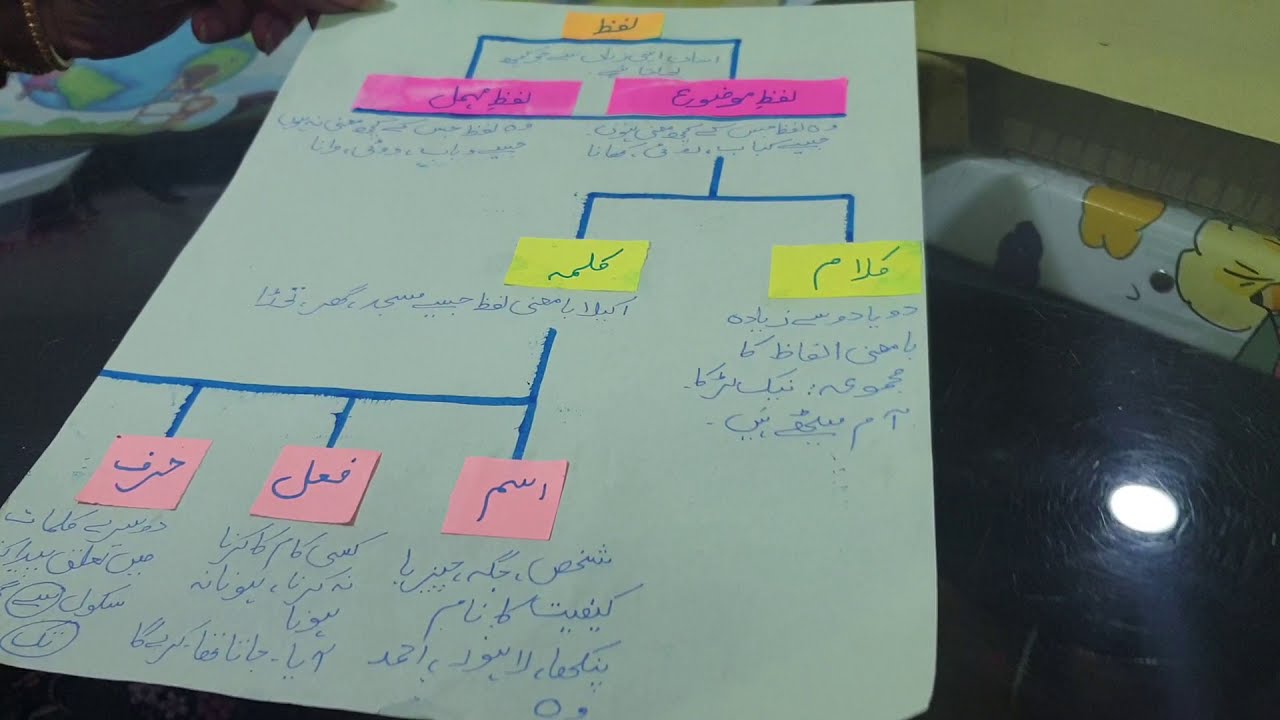 لفظ
انسان اپنی زبان سے جو
لفظِ موضوع
لفظِ مہمل
وہ لفظ جس کے کچھ معنی ہوں۔
جیسے کتاب، روٹی، کھانا
وہ لفظ جس کے کچھ معنی نہ ہوں
جیسے وتاب، ووٹی، وانا
کلام
کلمہ
دو یا دو سے زیادہ
بامعنی الفاظ کا
مجموعہ: نیک لڑکا۔
آم میٹھے ہیں۔
اکیلا بامعنی لفظ جیسے مسجد، گھر،
اسم
فعل
حرف
شخص، جگہ، چیز یا
کیفیت کا نام
پنکھا، لاہور، احمد
وہ
کسی کام کا کرنا
نہ کرنا، ہونا نہ
ہونا
آیا۔ جاتا تھا۔ کرے گا
دوسرے کلمات
میں تعلق پیدا
سکول سے
تک